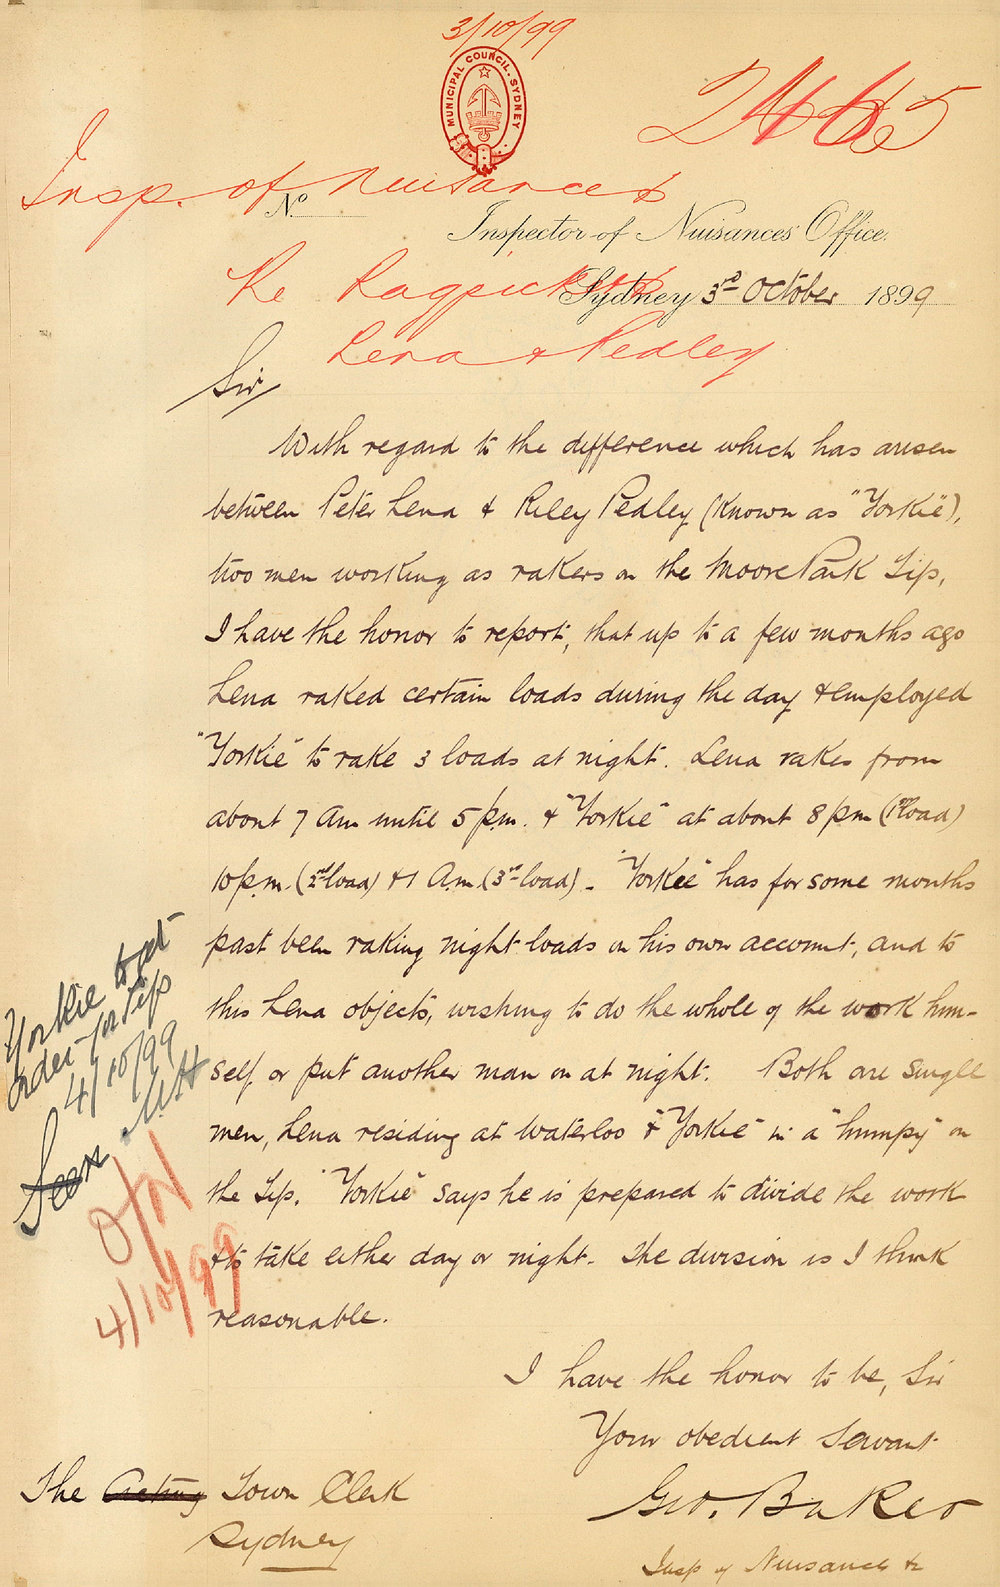 3/10/99
MUNICIPAL COUNCIL. SYDNEY
Insp. of Nuisances
No
Inspector of Nuisances Office.
Re Ragpickers
Sydney 3rd October 1899
Lena & Pedley
Sir
With regard to the difference which has arisen
between Peter Lena & Riley Pedley (known as "Yorkie"),
two men working as rakers on the Moore Park Tip,
I have the honor to report, that up to a few months ago
Lena raked certain loads during the day & employed
"Yorkie" to rake 3 loads at night. Lena rakes from
about 7 am until 5 p.m. & "Yorkie" at about 8 pm (1st load)
10 p.m. (2nd load) & 1 A.m. (3rd load). "Yorkie" has for some months
past been raking night loads on his own account, and to
this Lena objects, wishing to do the whole of the work him-
self, or put another man on at night. Both are single
men, Lena residing at Waterloo & "Yorkie" in a "humpy" on
the Tip. "Yorkie" says he is prepared to divide the work
& to take either day or night. The division is I think
reasonable.
Yorkie to get
order for Tip
4/10/99
Seen
4/10/99
I have the honor to be, Sir
Your obedient Servant
Geo. Baker
Insp of Nuisances &c
The Acting Town Clerk
Sydney